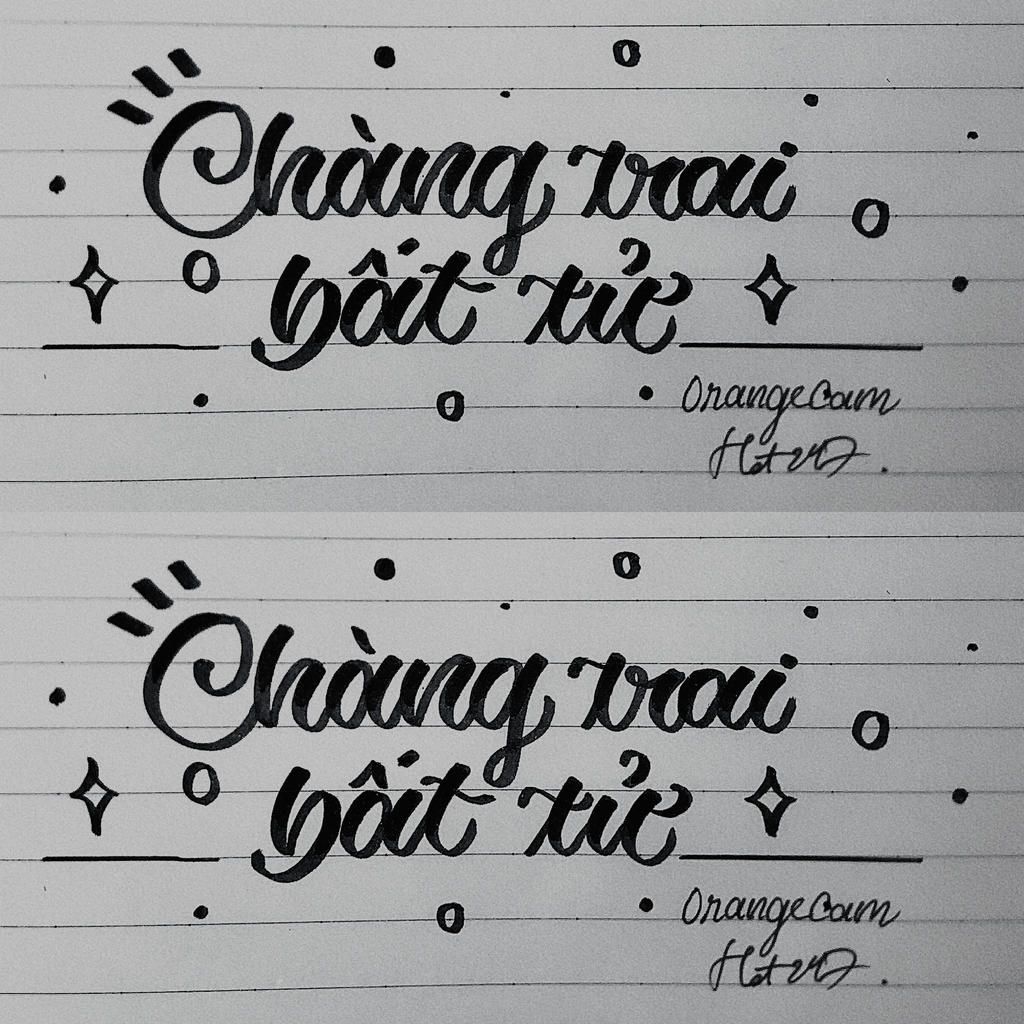 Chàng trai
bất tử
OrangeCam
Chàng trai
bất tử
OrangeCam